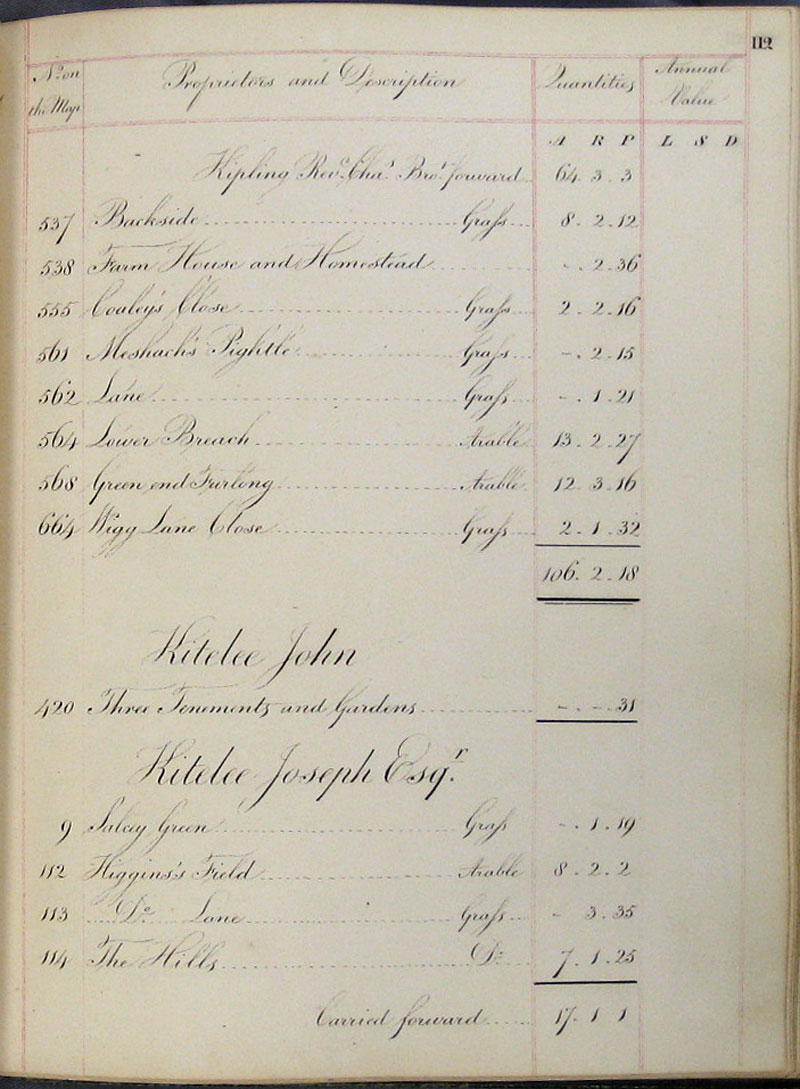 112
No on the Map Proprietors and Description Quantities Annual Value
A R P L S D
Kipling Revd. Chas. Brot. forward 64. 3. 3
537 Backside Grass 8. 2. 12
538 Farm House and Homestead -. 2. 36
555 Coaley's Close Grass 2. 2. 16
561 Meshach's Pightle Grass -. 2. 15
562 Lane Grass -. 1. 21
564 Lower Breach Arable 13. 2. 27
568 Green end Furlong Arable 12. 3. 16
664 Wigg Lane Close Grass 2. 1. 32
106. 2. 18
Kitelee John
420 Three Tenements and Gardens -. -. 31
Kitelee Joseph Esqr.
9 Salcey Green Grass -. 1. 19
112 Higgins's Field Arable 8. 2. 2
113 Do. Lane Grass - 3. 35
114 The Hills Do. 7. 1. 25
Carried forward 17. 1 1